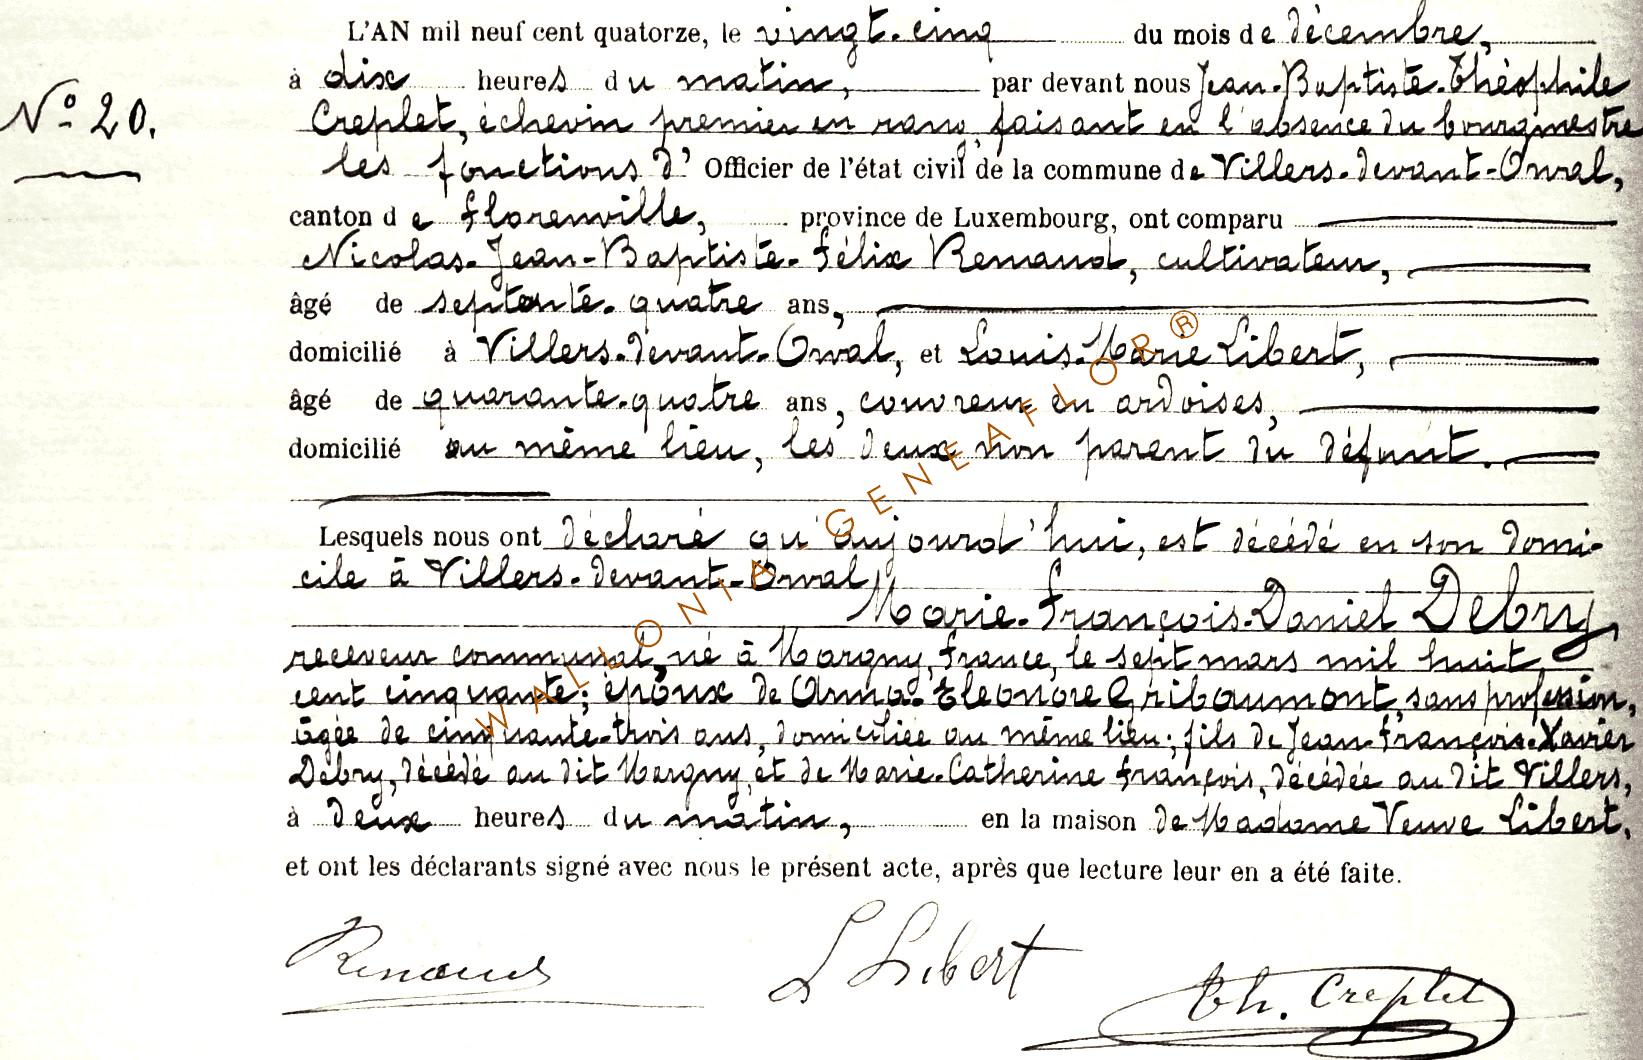 L'AN mil neuf cent quatorze, le vingt-cinq du mois de décembre,
à dix heures du matin, par devant nous Jean-Baptiste-Théophile
N° 20.
Creplet, échevin premier en rang, faisant en l'absence du bourgmestre
les fonctions d' Officier de l'état civil de la commune de Villers-devant-Orval,
canton de Florenville, province de Luxembourg, ont comparu
Nicolas-Jean-Baptiste-Félix Renaud, cultivateur,
âgé de septante-quatre ans,
domicilié à Villers-devant-Orval, et Louis-Marie Libert,
âgé de quarante-quatre ans, couvreur en ardoises,
domicilié au même lieu, les deux non parent du défunt.
Lesquels nous ont déclaré qu'aujourd'hui, est décédé en son domi-
cile à Villers-devant-Orval
Marie-François-Daniel Debry,
receveur communal, né à Margny, France, le sept mars mil huit
cent cinquante; époux de Anna-Eleonore Gribaumont, sans profession,
âgée de cinquante-trois ans, domiciliée au même lieu; fils de Jean-François-Xavier
Debry, décédé au dit Margny, et de Marie-Catherine François, décédée au dit Villers,
à deux heures du matin, en la maison de Madame Veuve Libert,
et ont les déclarants signé avec nous le présent acte, après que lecture leur en a été faite.
Renaud L Libert Th. Creplet
WALLONIA-GENEAFLOR®